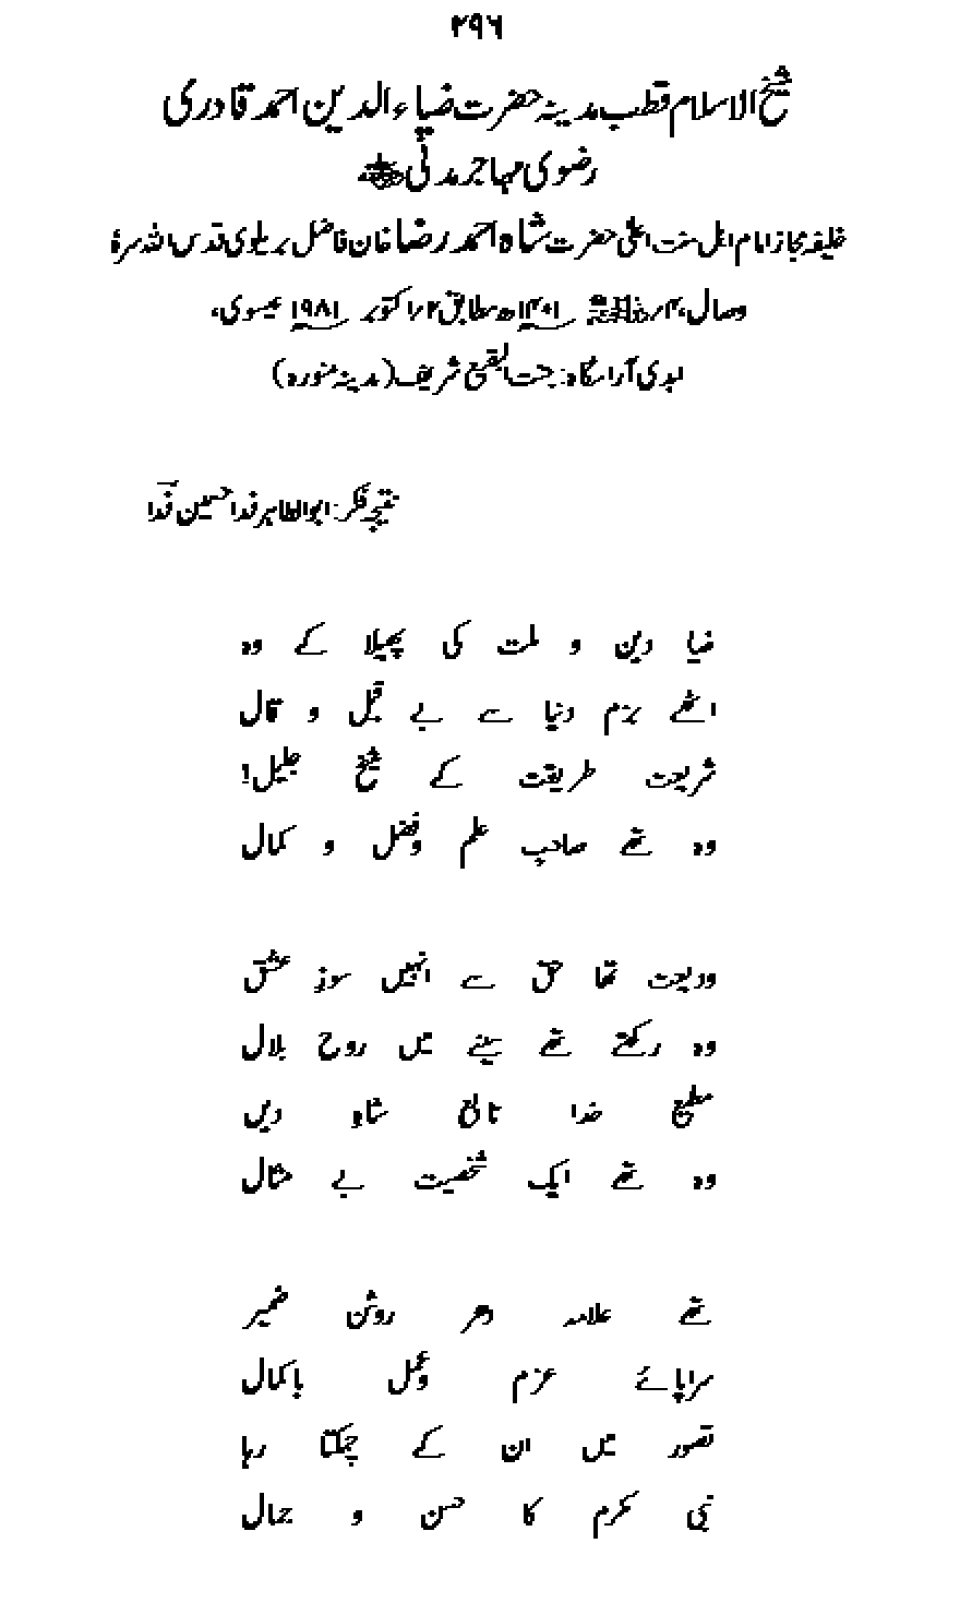 ۲۹۶
شیخ الاسلام قطب مدینہ حضرت ضیاء الدین احمد قادری
رضوی مہاجر مدنی
خلیفہ مجاز امام اہل سنت اعلیٰ حضرت شاہ احمد رضا خان فاضل بریلوی قدس اللہ سرہٗ
وصال، ۴؍ ۱۴۰۱ھ مطابق ۲؍ اکتوبر ۱۹۸۱ عیسوی،
ابدی آرامگاہ: جنت البقیع شریف (مدینہ منورہ)
نتیجہ فکر: ابوالطاہر فدا حسین فدا
ضیا دین و ملت کی پھیلا کے وہ
اٹھے بزم دنیا سے بے قیل و قال
شریعت طریقت کے شیخ جلیل!
وہ تھے صاحب علم وفضل و کمال
ودیعت تھا حق سے انہیں سوز عشق
وہ رکھتے تھے سینے میں روح بلال
مطیع خدا تابع شاہ دیں
وہ تھے ایک شخصیت بے مثال
تھے علامہ دھر روشن ضمیر
سراپائے عزم وعمل باکمال
تصور میں ان کے چمکتا رہا
نبی مکرم کا حسن و جمال